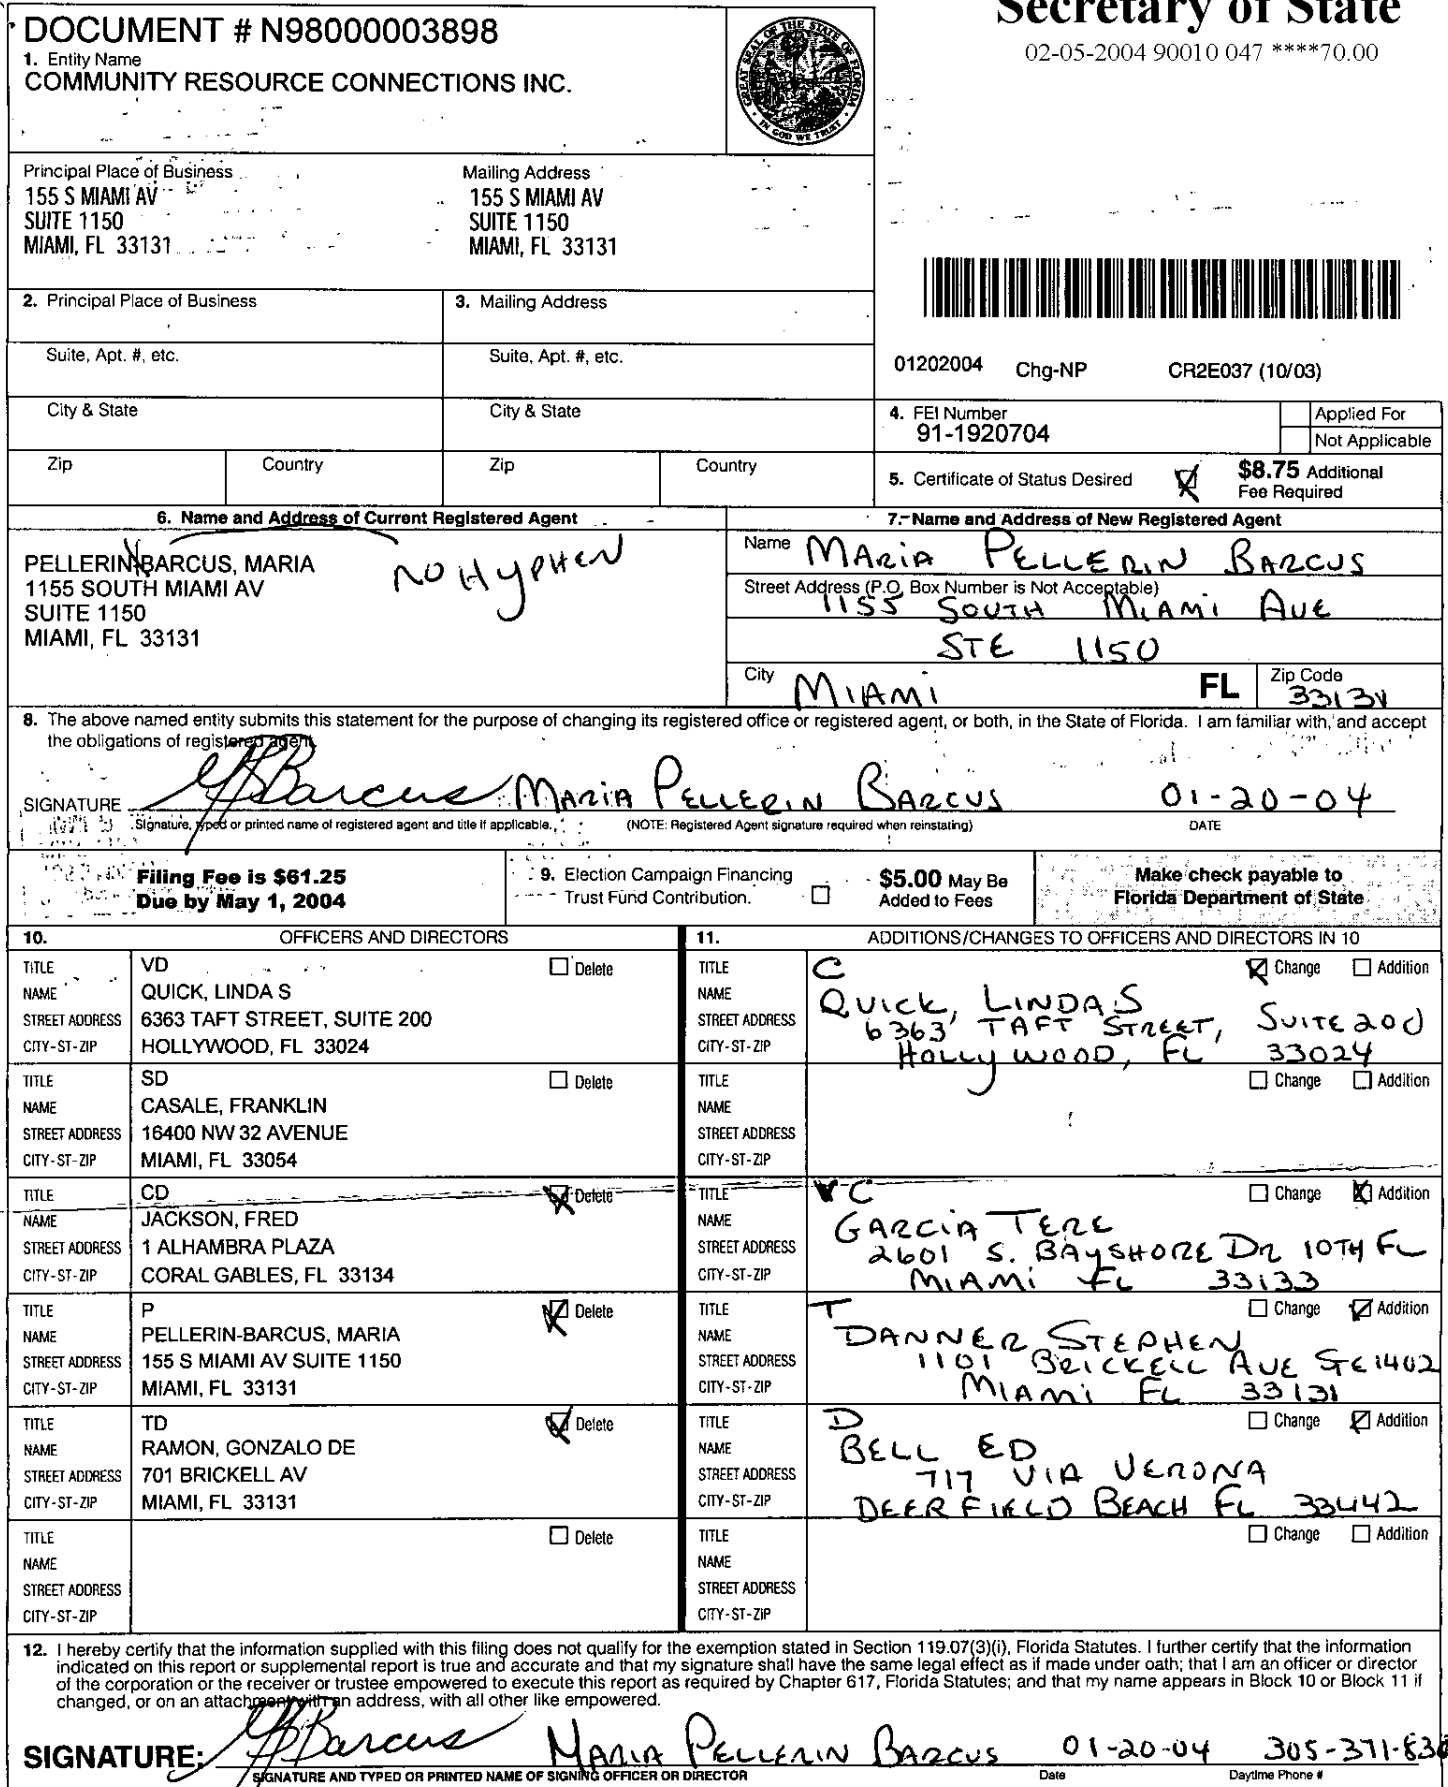 Secretary of State
02-05-2004 90010 047 ****70.00
DOCUMENT # N98000003898
1. Entity Name
COMMUNITY RESOURCE CONNECTIONS INC.
GREAT SEAL OF THE STATE OF FLORIDA
IN GOD WE TRUST
Principal Place of Business
155 S MIAMI AV
SUITE 1150
MIAMI, FL 33131
Mailing Address
155 S MIAMI AV
SUITE 1150
MIAMI, FL 33131
2. Principal Place of Business
3. Mailing Address
Suite, Apt. #, etc.
Suite, Apt. #, etc.
City & State
City & State
Zip
Country
Zip
Country
01202004 Chg-NP CR2E037 (10/03)
4. FEI Number
91-1920704
Applied For
Not Applicable
5. Certificate of Status Desired
$8.75 Additional
Fee Required
6. Name and Address of Current Registered Agent
PELLERIN-BARCUS, MARIA
1155 SOUTH MIAMI AV
SUITE 1150
MIAMI, FL 33131
NO HYPHEN
7. Name and Address of New Registered Agent
Name MARIA PELLERIN BARCUS
Street Address (P.O. Box Number is Not Acceptable)
1155 SOUTH MIAMI AVE
STE 1150
City MIAMI FL Zip Code
33131
8. The above named entity submits this statement for the purpose of changing its registered office or registered agent, or both, in the State of Florida. I am familiar with, and accept
the obligations of registered agent.
SIGNATURE Barcus MARIA PELLERIN BARCUS 01-20-04
Signature, typed or printed name of registered agent and title if applicable. (NOTE: Registered Agent signature required when reinstating) DATE
Filing Fee is $61.25
Due by May 1, 2004
9. Election Campaign Financing
Trust Fund Contribution.
$5.00 May Be
Added to Fees
Make check payable to
Florida Department of State
10. OFFICERS AND DIRECTORS
11. ADDITIONS/CHANGES TO OFFICERS AND DIRECTORS IN 10
TITLE VD Delete
NAME QUICK, LINDA S
STREET ADDRESS 6363 TAFT STREET, SUITE 200
CITY-ST-ZIP HOLLYWOOD, FL 33024
TITLE C Change Addition
NAME QUICK, LINDA S
STREET ADDRESS 6363 TAFT STREET, SUITE 200
CITY-ST-ZIP HOLLYWOOD, FL 33024
TITLE SD Delete
NAME CASALE, FRANKLIN
STREET ADDRESS 16400 NW 32 AVENUE
CITY-ST-ZIP MIAMI, FL 33054
TITLE Change Addition
NAME
STREET ADDRESS
CITY-ST-ZIP
TITLE CD Delete
NAME JACKSON, FRED
STREET ADDRESS 1 ALHAMBRA PLAZA
CITY-ST-ZIP CORAL GABLES, FL 33134
TITLE VC Change Addition
NAME GARCIA TERE
STREET ADDRESS 2601 S. BAYSHORE DR 10TH FL
CITY-ST-ZIP MIAMI FL 33133
TITLE P Delete
NAME PELLERIN-BARCUS, MARIA
STREET ADDRESS 155 S MIAMI AV SUITE 1150
CITY-ST-ZIP MIAMI, FL 33131
TITLE T Change Addition
NAME DANNER STEPHEN
STREET ADDRESS 1101 BRICKELL AVE STE 1402
CITY-ST-ZIP MIAMI FL 33131
TITLE TD Delete
NAME RAMON, GONZALO DE
STREET ADDRESS 701 BRICKELL AV
CITY-ST-ZIP MIAMI, FL 33131
TITLE D Change Addition
NAME BELL ED
STREET ADDRESS 717 VIA VERONA
CITY-ST-ZIP DEERFIELD BEACH FL 33442
TITLE Delete
NAME
STREET ADDRESS
CITY-ST-ZIP
TITLE Change Addition
NAME
STREET ADDRESS
CITY-ST-ZIP
12. I hereby certify that the information supplied with this filing does not qualify for the exemption stated in Section 119.07(3)(i), Florida Statutes. I further certify that the information
indicated on this report or supplemental report is true and accurate and that my signature shall have the same legal effect as if made under oath; that I am an officer or director
of the corporation or the receiver or trustee empowered to execute this report as required by Chapter 617, Florida Statutes; and that my name appears in Block 10 or Block 11 if
changed, or on an attachment with an address, with all other like empowered.
SIGNATURE: Barcus MARIA PELLERIN BARCUS 01-20-04 305-371-83
SIGNATURE AND TYPED OR PRINTED NAME OF SIGNING OFFICER OR DIRECTOR Date Daytime Phone #